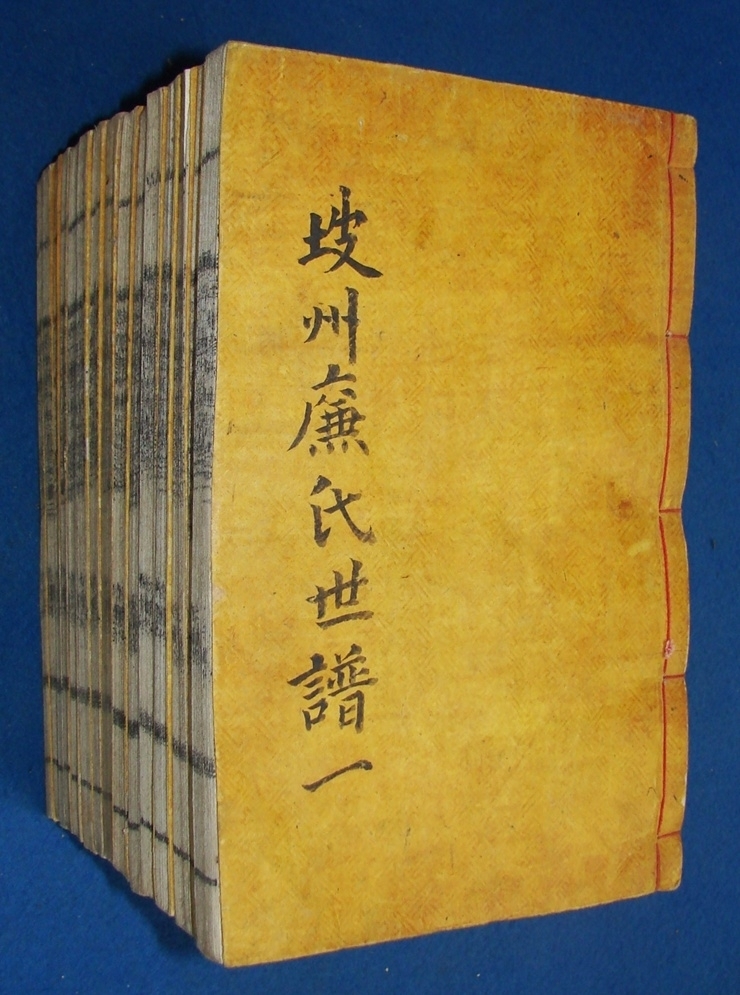 坡州廉氏世譜一